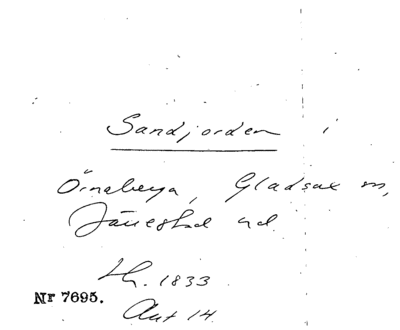 Sandjorden i
Örneberga, Gladsax sn,
Järrestad hd
Lh. 1833
Nr 7695.
Akt 14